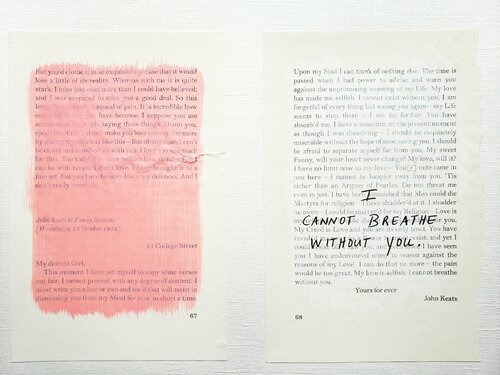 But you'd clothe it in so exquisite a phrase that it would
lose a little of its reality. Whereas with me it is quite
stark: I miss you even more than I could have believed;
and I was prepared to miss you a good deal. So this
letter is just really a squeal of pain. It is incredible how
essential to me you have become. I suppose you are
accustomed to people saying these things. Damn you,
spoilt creature; I shan't make you love me any the more
by giving myself away like this – But oh my dear, I can't
be clever and stand-offish with you: I love you too much
for that. Too truly. You have no idea how stand-offish I
can be with people I don't love. I have brought it to a
fine art. But you have broken down my defences. And I
don't really resent it.
John Keats to Fanny Brawne
(Wednesday, 13 October 1819)
25 College Street
My dearest Girl,
This moment I have set myself to copy some verses
out fair. I cannot proceed with any degree of content. I
must write you a line or two and see if that will assist in
dismissing you from my Mind for ever so short a time.
67
Upon my Soul I can think of nothing else. The time is
passed when I had power to advise and warn you
against the unpromising morning of my Life. My love
has made me selfish. I cannot exist without you. I am
forgetful of every thing but seeing you again – my Life
seems to stop there – I see no further. You have
absorb'd me. I have a sensation at the present moment
as though I was dissolving – I should be exquisitely
miserable without the hope of soon seeing you. I should
be afraid to separate myself far from you. My sweet
Fanny, will your heart never change? My love, will it?
I have no limit now to my love – You[r] note came in
just here – I cannot be happier away from you. 'Tis
richer than an Argosy of Pearles. Do not threat me
even in jest. I have been astonished that Men could die
Martyrs for religion – I have shudder'd at it. I shudder
no more – I could be martyr'd for my Religion – Love is
I
CANNOT BREATHE
WITHOUT YOU.
my Creed is Love and you are its only tenet. You have
seen you I have endeavoured often to reason against the
reasons of my Love. I can do that no more – the pain
would be too great. My love is selfish. I cannot breathe
without you.
Yours for ever
John Keats
68